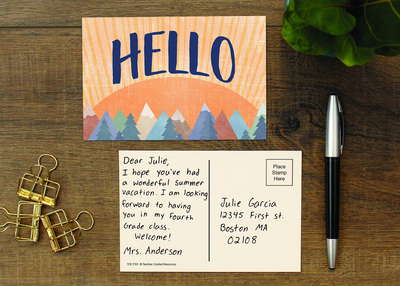 HELLO
Dear Julie,
I hope you've had
a wonderful summer
vacation. I am looking
forward to having
you in my Fourth
Grade class.
Welcome!
Mrs. Anderson
Place
Stamp
Here
Julie Garcia
12345 First st.
Boston MA
02108
© Teacher Created Resources